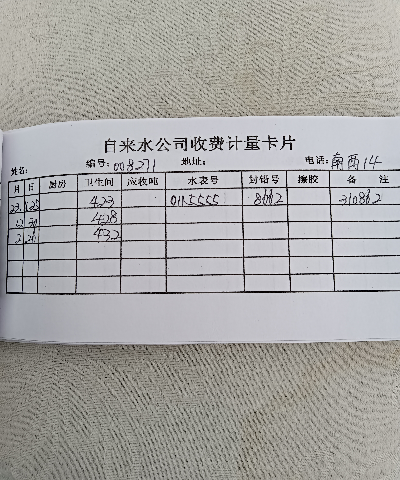 自来水公司收费计量卡片
姓名: 编号:008271 地址: 电话:南西14
月 日 厨房 卫生间 应收吨 水表号 封铅号 橡胶 备 注
423 0115555 8662 310862
428
2 432